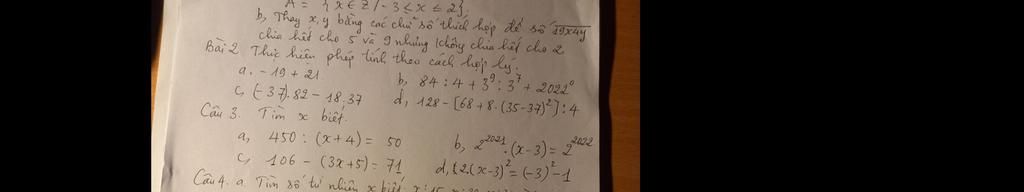 A = { x ∈ Z / -3 ≤ x ≤ 2 }.
b, Thay x, y bằng các chữ số thích hợp để số 19x4y
chia hết cho 5 và 9 nhưng không chia hết cho 2
Bài 2 Thực hiện phép tính theo cách hợp lý.
a. -19 + 21 b, 84 : 4 + 3⁹ : 3⁷ + 2022⁰
c, (-37).82 - 18.37 d, 128 - [68 + 8.(35-37)²] : 4
Câu 3. Tìm x biết.
a, 450 : (x+4) = 50 b, 2²⁰²¹.(x-3) = 2²⁰²²
c, 106 - (3x+5) = 71 d, 12.(x-3)² = (-3)² - 1
Câu 4. a. Tìm số tự nhiên x biết